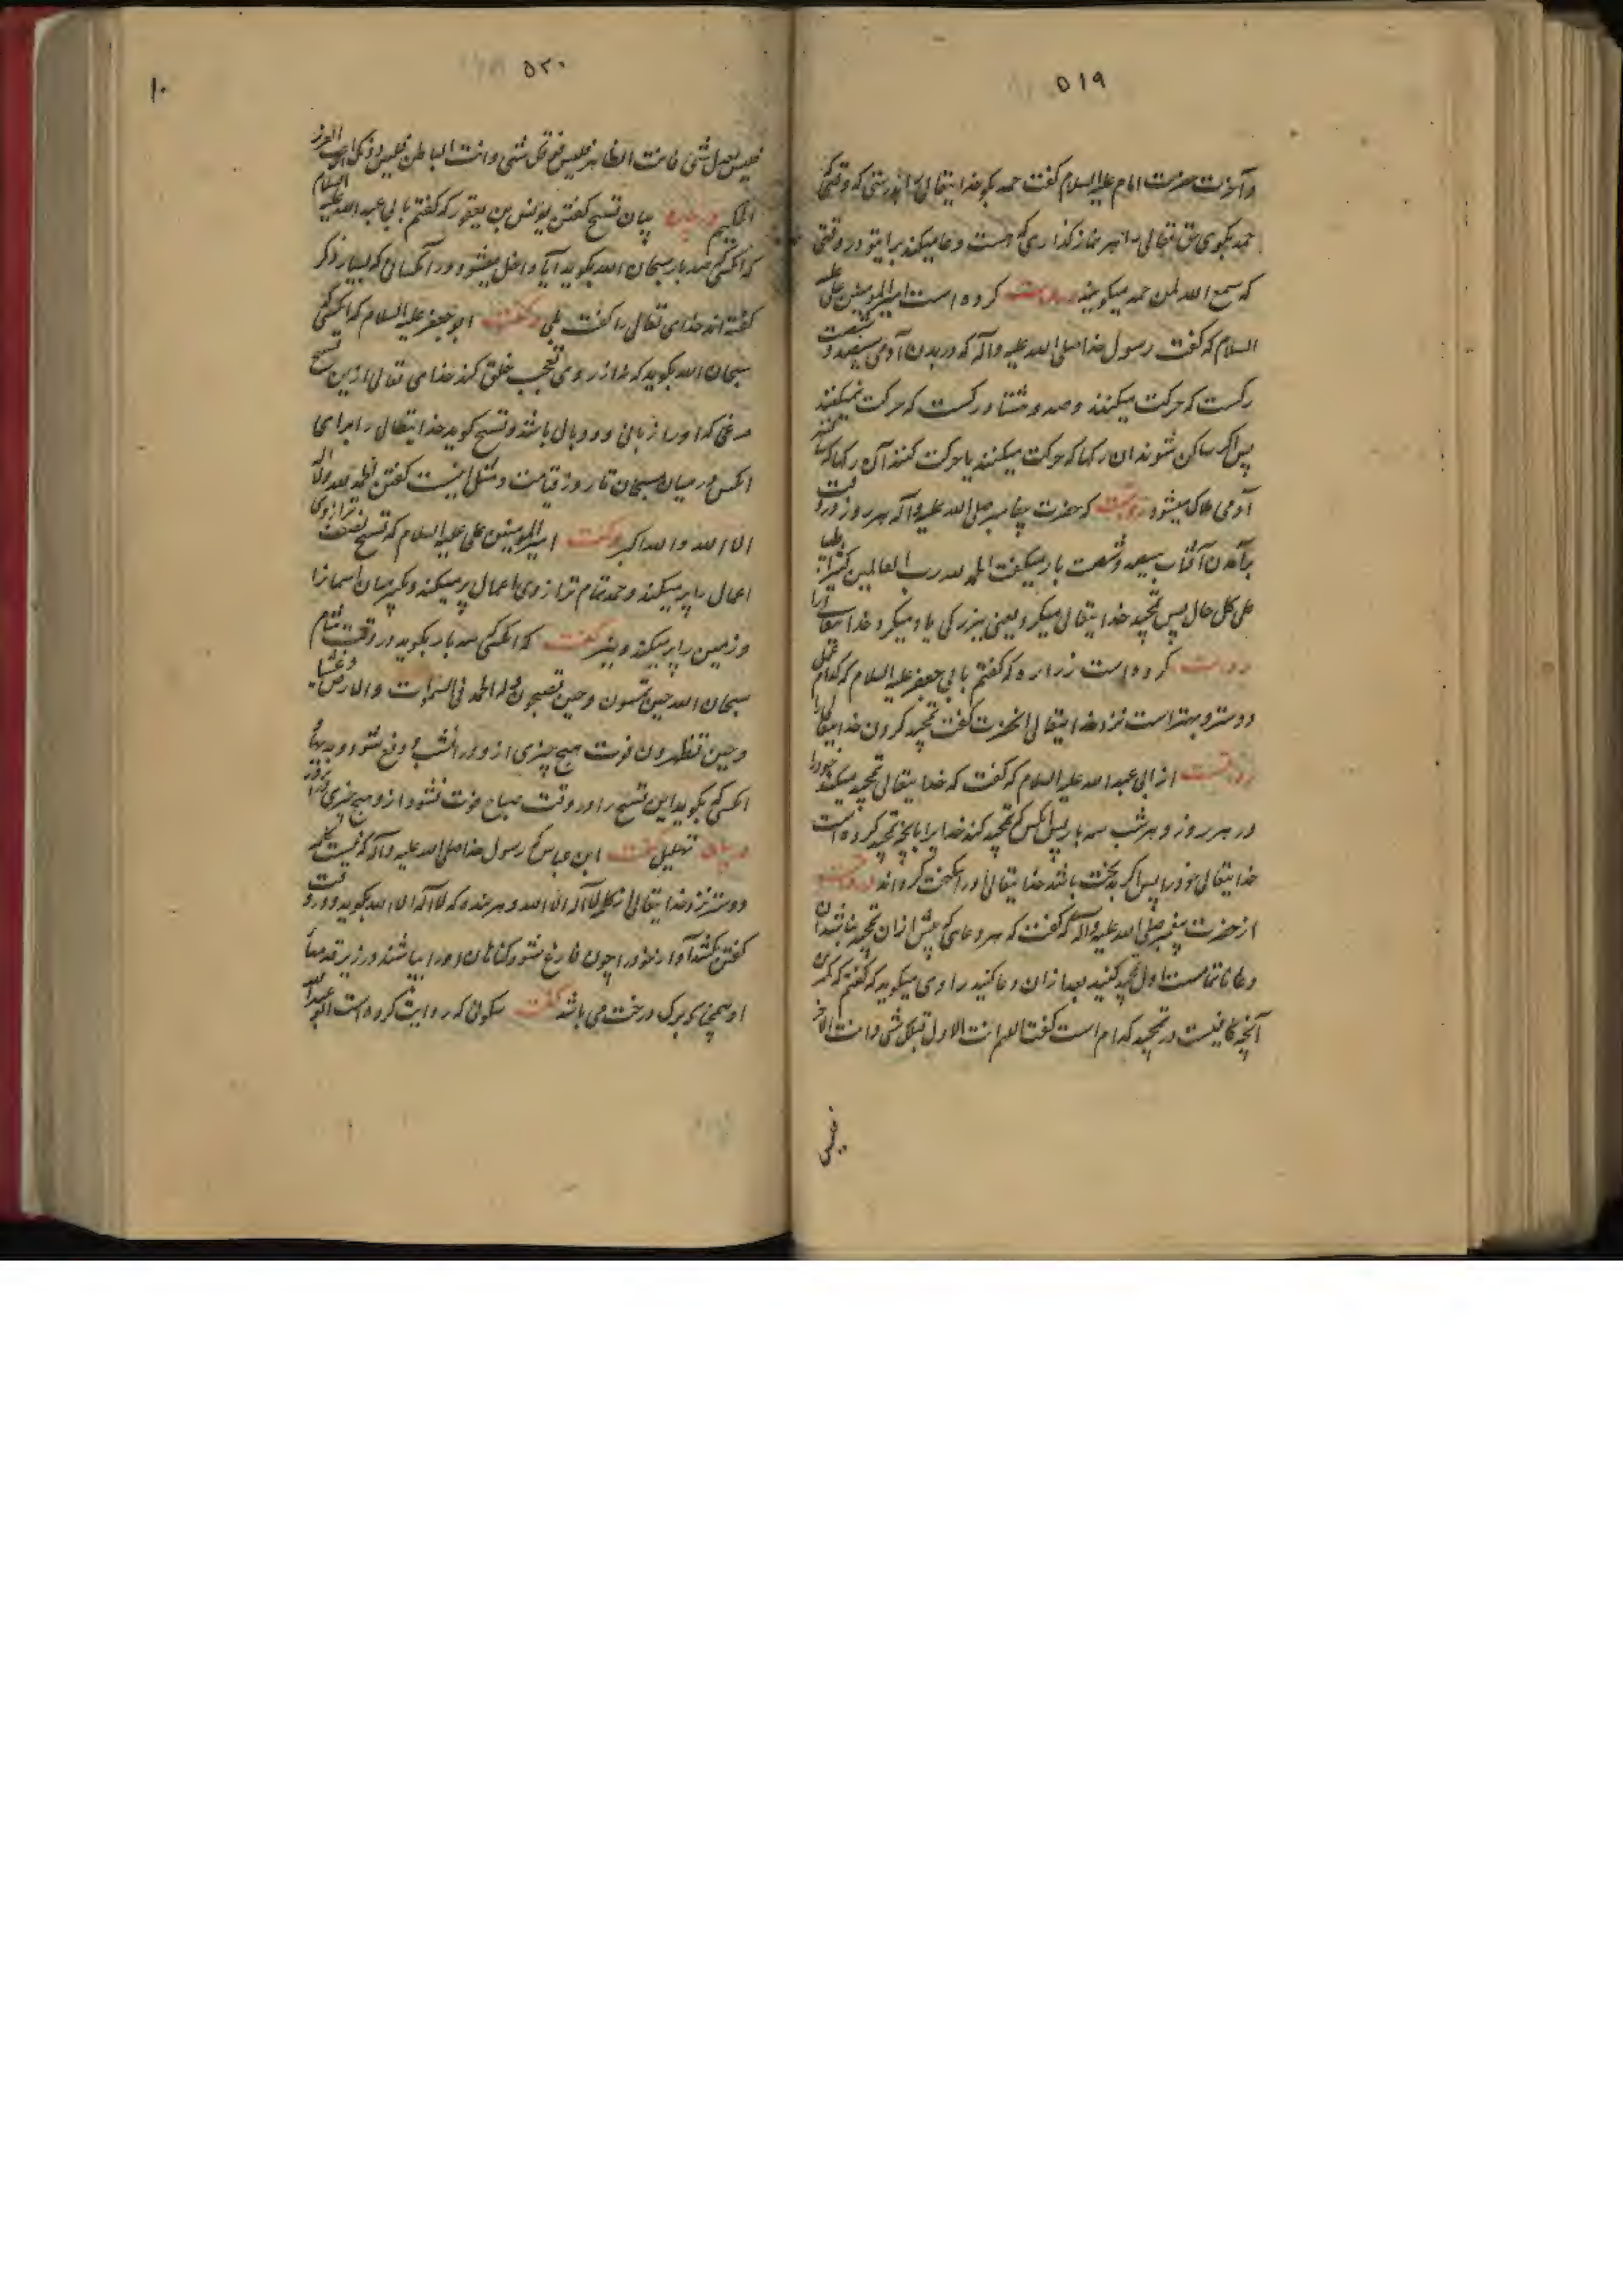 ۵۱۹
و آنحضرت امام علیه السلام گفت حمد بگو خدایتعالی را بدرستی که وقتی که
حمد بگوی حق تعالی را هر نماز گذاری که هست دعا میکند برای تو در وقتی
که سمع الله لمن حمده میگویند روایت کرده است امیرالمومنین علی علیه
السلام که گفت رسول خدا صلی الله علیه وآله که در بدن آدمی سیصد و شصت
رگست که حرکت میکنند و صد و هشتاد رگست که حرکت نمیکنند
پس اگر ساکن شوند آن رگها که حرکت میکنند یا حرکت کنند آن رگها که ساکنند
آدمی هلاک میشود روایتست که حضرت پیغامبر صلی الله علیه وآله هر روز در وقت
برآمدن آفتاب سیصد و شصت بار میگفت الحمد لله رب العالمین کثیرا طیبا
علی کل حال پس تمجید خدایتعالی میکرد یعنی ببزرگی یاد میکرد خدایتعالی را
روایت کرده است زراره که گفتم بابی جعفر علیه السلام که کدام عمل
دوستر و بهتر است نزد خدایتعالی آنحضرت گفت تمجید کردن خدایتعالی را
روایتست از ابی عبدالله علیه السلام که گفت که خدایتعالی تمجید میکند خود را
در هر روز و هر شب سه بار پس آنکس که تمجید کند خدا را بآنچه تمجید کرده است
خدایتعالی خود را پس اگر بدبخت باشد خدایتعالی او را نیکبخت گرداند روایتست
از حضرت پیغمبر صلی الله علیه وآله که گفت که هر دعای که پیش از آن تمجید نباشد آن
دعا ناتمامست اول تمجید کنید بعد از آن دعا کنید راوی میگوید که گفتم که کمترین
آنچه کافیست در تمجید کدام است گفت اللهم انت الاول قبل کل شی وانت الاخر
فلیس
۵۲۰
۱۰
فلیس بعدک شی وانت الظاهر فلیس فوقک شی وانت الباطن فلیس دونک وانت العزیز
الحکیم در بیان تسبیح گفتن یونس بن یعقوب که گفتم بابی عبدالله علیه السلام
که آنکس که صد بار سبحان الله بگوید آیا داخل میشود در آنکسان که بسیار ذکر
گفته اند خدای تعالی را گفت بلی و گفت ابو جعفر علیه السلام که آنکس که
سبحان الله بگوید که نه از روی تعجب خلق کند خدای تعالی از این تسبیح
مرغی که او را زبانی و دو بال باشد و تسبیح گوید خدایتعالی را برای
آنکس در میان مسبحان تا روز قیامت و مثل اینست گفتن الحمد لله ولا اله
الا الله والله اکبر و گفت امیرالمومنین علی علیه السلام که تسبیح نصف ترازوی
اعمال را پر میکند و حمد تمام ترازوی اعمال پر میکند و تکبیر میان آسمان را
و زمین را پر میکند و نیز گفت که آنکس که سه بار بگوید در وقت شام
سبحان الله حین تمسون وحین تصبحون وله الحمد فی السموات والارض وعشیا
وحین تظهرون فوت هیچ چیزی از او در آنشب و دفع شود و بدیها
آنکس که بگوید این تسبیح را در وقت صباح فوت نشود از و هیچ چیزی در آنروز
در بیان تهلیل گفت ابن عباس که رسول خدا صلی الله علیه وآله که نیست کلمه
دوستر نزد خدایتعالی از کلمه لا اله الا الله و هر بنده که لا اله الا الله بگوید و در وقت
گفتن بکشد آواز خود را چون فارغ شود گناهان او را بپاشند در زیر قدمها
او همچنانکه برگ درخت می پاشد گفت سکونی که روایت کرده است ابو عبدالله